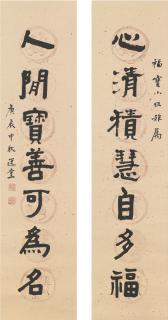 福寶小姐雅屬
心清積慧自多福
人間寶善可為名
庚辰中秋選堂